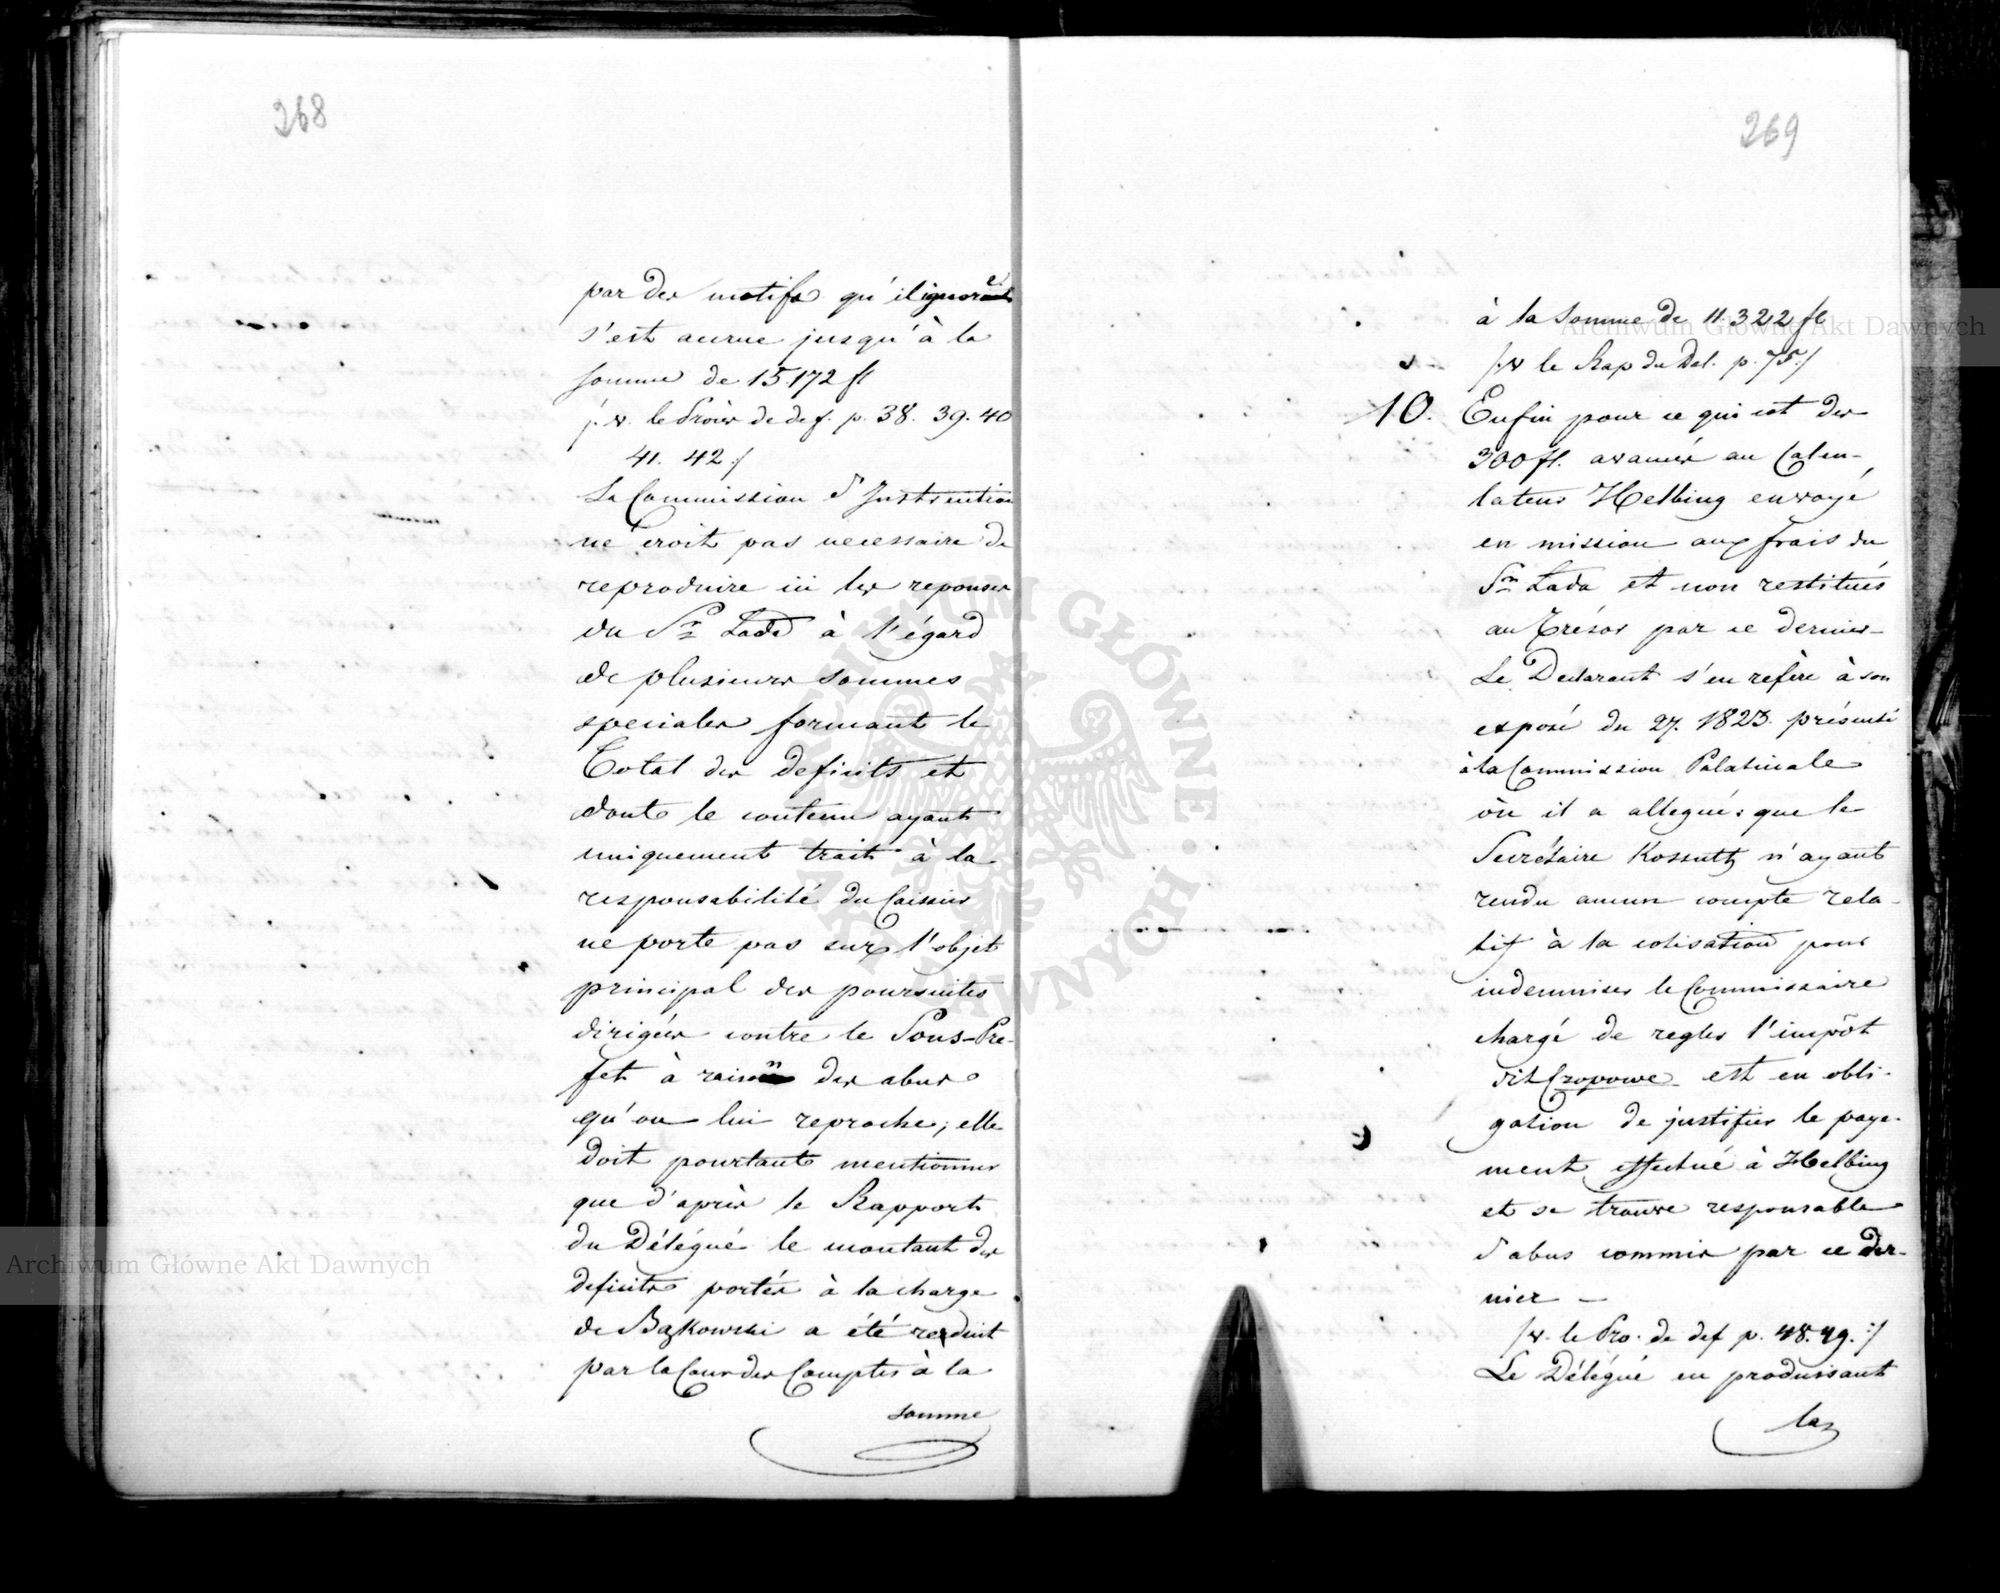 268
par des motifs qu'il ignore
s'est accrue jusqu'à la
somme de 15.172 fl
/: v. le Procès de def. p. 38. 39. 40
41. 42 :/
La Commission d'Instruction
ne croit pas necessaire de
reproduire ici les reponses
du Sr Lada à l'égard
de plusieurs sommes
speciales formant le
Total des deficits et
dont le contenu ayant
uniquement trait à la
responsabilité du Caissier
ne porte pas sur l'objet
principal des poursuites
dirigées contre le Sous-Pre-
fet à raison des abus
qu'on lui reproche; elle
doit pourtant mentionner
que d'après le Rapport
du Délégué le montant des
deficits portés à la charge
de Bąkowski a été reduit
par la Cour des Comptes à la
somme
269
à la somme de 11.322 fl
/: v le Rap du Del. p. 75 :/
10. Enfin pour ce qui est des
300 fl. avancés au Calcu-
lateur Helbing envoyé
en mission aux frais du
Sr Lada et non restitués
au Trésor par ce dernier –
Le Declarant s'en refère à son
exposé du 27. 1823. présenté
à la Commission Palatinale
où il a allegué: que le
Secrétaire Kossuth n'ayant
rendu aucun compte rela-
tif à la cotisation pour
indemniser le Commissaire
chargé de regler l'impôt
dit Czopowe est en obli-
gation de justifier le paye-
ment effectué à Helbing
et se trouve responsable
d'abus commis par ce der-
nier –
/: v. le Pro. de def p. 48. 49. :/
Le Délégué en produisant
la
Archiwum Główne Akt Dawnych
Archiwum Główne Akt Dawnych
ARCHIWUM GŁÓWNE AKT DAWNYCH